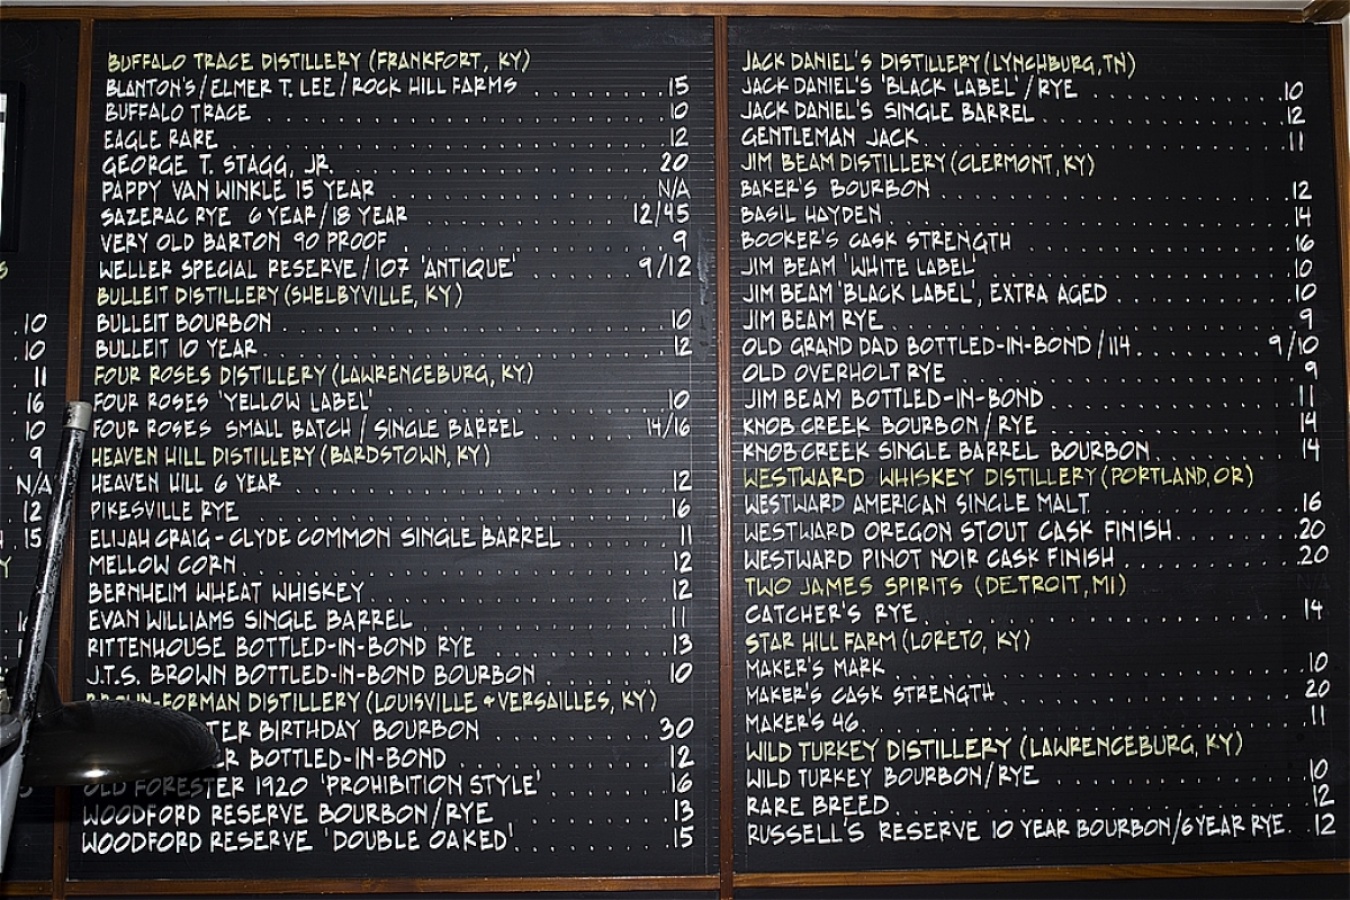 BUFFALO TRACE DISTILLERY (FRANKFORT, KY)
BLANTON'S/ELMER T. LEE/ROCK HILL FARMS 15
BUFFALO TRACE 10
EAGLE RARE 12
GEORGE T. STAGG, JR. 20
PAPPY VAN WINKLE 15 YEAR N/A
SAZERAC RYE 6 YEAR/18 YEAR 12/45
VERY OLD BARTON 90 PROOF 9
WELLER SPECIAL RESERVE/107 'ANTIQUE' 9/12
BULLEIT DISTILLERY (SHELBYVILLE, KY)
BULLEIT BOURBON 10
BULLEIT 10 YEAR 12
FOUR ROSES DISTILLERY (LAWRENCEBURG, KY)
FOUR ROSES 'YELLOW LABEL' 10
FOUR ROSES SMALL BATCH / SINGLE BARREL 14/16
HEAVEN HILL DISTILLERY (BARDSTOWN, KY)
HEAVEN HILL 6 YEAR 12
PIKESVILLE RYE 16
ELIJAH CRAIG - CLYDE COMMON SINGLE BARREL 11
MELLOW CORN 12
BERNHEIM WHEAT WHISKEY 12
EVAN WILLIAMS SINGLE BARREL 11
RITTENHOUSE BOTTLED-IN-BOND RYE 13
J.T.S. BROWN BOTTLED-IN-BOND BOURBON 10
BROWN-FORMAN DISTILLERY (LOUISVILLE & VERSAILLES, KY)
TER BIRTHDAY BOURBON 30
R BOTTLED-IN-BOND 12
OLD FORESTER 1920 'PROHIBITION STYLE' 16
WOODFORD RESERVE BOURBON/RYE 13
WOODFORD RESERVE 'DOUBLE OAKED' 15
JACK DANIEL'S DISTILLERY (LYNCHBURG, TN)
JACK DANIEL'S 'BLACK LABEL' / RYE 10
JACK DANIEL'S SINGLE BARREL 12
GENTLEMAN JACK 11
JIM BEAM DISTILLERY (CLERMONT, KY)
BAKER'S BOURBON 12
BASIL HAYDEN 14
BOOKER'S CASK STRENGTH 16
JIM BEAM 'WHITE LABEL' 10
JIM BEAM 'BLACK LABEL', EXTRA AGED 10
JIM BEAM RYE 9
OLD GRAND DAD BOTTLED-IN-BOND / 114 9/10
OLD OVERHOLT RYE 9
JIM BEAM BOTTLED-IN-BOND 11
KNOB CREEK BOURBON / RYE 14
KNOB CREEK SINGLE BARREL BOURBON 14
WESTWARD WHISKEY DISTILLERY (PORTLAND, OR)
WESTWARD AMERICAN SINGLE MALT 16
WESTWARD OREGON STOUT CASK FINISH 20
WESTWARD PINOT NOIR CASK FINISH 20
TWO JAMES SPIRITS (DETROIT, MI)
CATCHER'S RYE 14
STAR HILL FARM (LORETO, KY)
MAKER'S MARK 10
MAKER'S CASK STRENGTH 20
MAKER'S 46 11
WILD TURKEY DISTILLERY (LAWRENCEBURG, KY)
WILD TURKEY BOURBON/RYE 10
RARE BREED 12
RUSSELL'S RESERVE 10 YEAR BOURBON/6 YEAR RYE 12
10
10
11
16
10
9
N/A
12
15